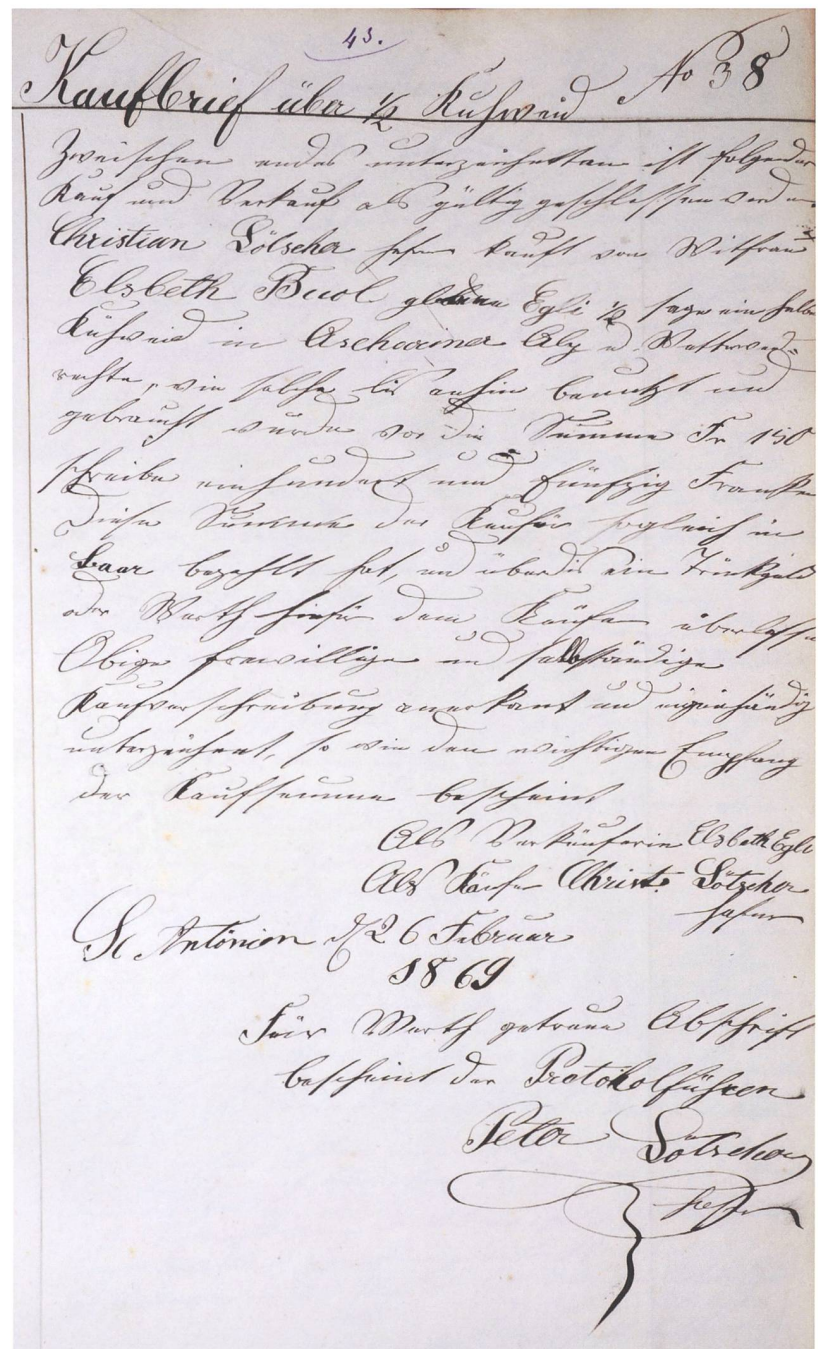 43.
Kaufbrief über 1/2 Kuhweid No 38
Zweischen endes unterzeichnetten ist folgender
Kauf und Verkauf als gültig geschlossen worden
Christian Lötscher kauft von Witfrau
Elsbeth Buol Egli 1/2 sage ein halbe
Kuhweid in Aschariner Alp
rechte, wie solche bis anhin benutzt und
gebraucht wurde vor die Summe Fr 150
schreibe einhundert und fünfzig Franken
Diese Summe der Käufer sogleich in
baar bezahlt hat, und überdis ein Trinkgeld
oder Werth hiefür dem Käufer überlassen
Obige freiwillige und selbständige
Kaufverschreibung anerkant und eigenhändig
unterzeichnet, so wie den richtigen Empfang
der Kaufsumme bescheint
Als Verkäuferin Elsbeth Egli
Als Käufer Christ. Lötscher
St Antönien d 26 Februar
1869
Für Worth getreue Abschrift
bescheint der Protokolführer
Peter Lötscher